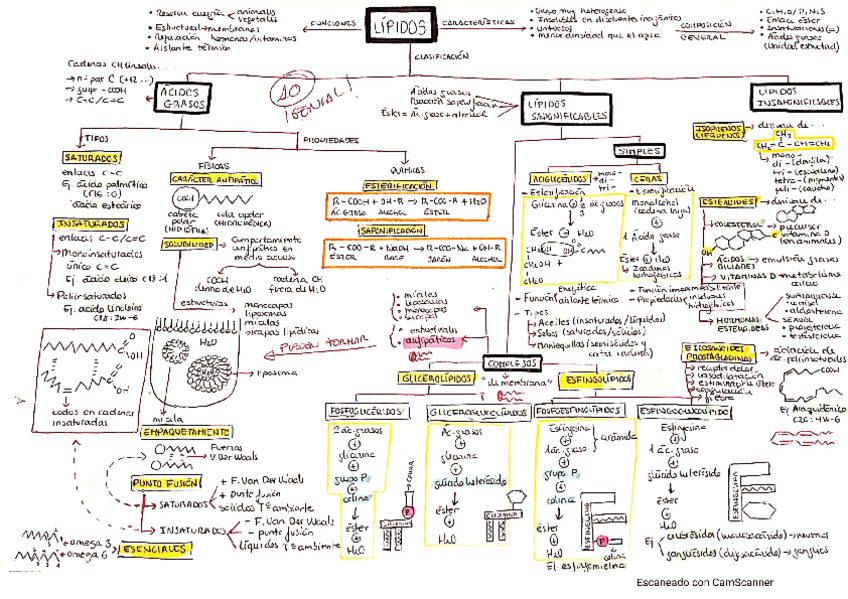 LÍPIDOS
FUNCIONES
• Reserva energía
animales
vegetales
• Estructural → membranas
• Regulación hormonas/vitaminas
• Aislante térmico
CARACTERÍSTICAS
• Grupo muy heterogéneo
• Insolubles en disolventes inorgánicos
• Untuosos
• Menor densidad que el agua
COMPOSICIÓN
GENERAL
• C, H, O / P, N, S
• Enlace éster
• Insaturaciones (=)
• Ácidos grasos
(unidad estructural)
CLASIFICACIÓN
ÁCIDOS GRASOS
→ grupo -COOH
→ C-C / C=C
10
¡GENIAL!
Ácidos grasos
Reacción saponificación
Éster = Ác. graso + alcohol
LÍPIDOS SAPONIFICABLES
LÍPIDOS INSAPONIFICABLES
TIPOS
PROPIEDADES
SATURADOS
enlaces C-C
Ej. ácido palmítico
(C16:0)
ácido esteárico
INSATURADOS
enlaces C-C / C=C
→ Monoinsaturados
único C=C
Ej. ácido oleico C18:1
→ Poliinsaturados
Ej. ácido linoleico
codos en cadenas
insaturadas
FÍSICAS
CARÁCTER ANFIPÁTICO
COOH
cabeza polar
(HIDRÓFILA)
cola apolar
(HIDROFÓBICA)
SOLUBILIDAD
→ Comportamiento
anfipático en
medio acuoso
COOH
dentro de H2O
cadena CH
fuera de H2O
estructuras
monocapas
liposomas
micelas
H2O
liposoma
micela
EMPAQUETAMIENTO
Fuerzas
V. Der Waals
PUNTO FUSIÓN
→ SATURADOS
+ F. Van Der Waals
+ punto fusión
sólidos Tª ambiente
→ INSATURADOS
- F. Van Der Waals
- punto fusión
líquidos Tª ambiente
omega 3
omega 6
ESENCIALES
QUÍMICAS
ESTERIFICACIÓN
R-COOH + OH-R → R-CO-O-R + H2O
ÁC. GRASO ALCOHOL ÉSTER
SAPONIFICACIÓN
R-COO-R + NaOH → R-COO-Na + OH-R
ÉSTER BASE JABÓN ALCOHOL
PUEDEN FORMAR
micelas
liposomas
monocapas
bicapas
estructurales
anfipáticos
SIMPLES
ACILGLICÉRIDOS
mono-
di-
tri-
- Esterificación
Glicerina + ác. grasos
Éster + H2O
- Función
energética
aislante térmico
- Tipos
Aceites (insaturados/líquidos)
Sebos (saturados/sólidos)
CERAS
- Esterificación
Monoalcohol
(cadena larga)
+
1 ác. graso
Éster + H2O
- Función impermeabilizante
- Propiedades
COMPLEJOS
"de membrana"
GLICEROLÍPIDOS
ESFINGOLÍPIDOS
FOSFOGLICÉRIDOS
2 ác. grasos
+
glicerina
+
grupo P
éster
+
H2O
GLICEROGLUCOLÍPIDOS
Ác. grasos
+
glicerina
+
éster
+
H2O
FOSFOESFINGOLÍPIDOS
Esfingosina
+
1 ác. graso
ceramida
+
grupo P
+
colina
éster
+
H2O
Ej. esfingomielina
ESFINGOGLUCOLÍPIDO
Esfingosina
+
1 ác. graso
+
éster
+
H2O
Ej
cerebrósidos (monosacárido) → neurona
gangliósidos (oligosacárido) → ganglios
ISOPRENOS (TERPENOS)
→ derivan de...
mono-
tetra- (pigmentos)
poli- (caucho)
ESTEROIDES
→ derivan de...
COLESTEROL
precursor
vitamina D
(en animales)
OH
ÁCIDOS BILIARES
→ emulsión grasas
VITAMINAS D → metabolismo
calcio
HORMONAS ESTEROIDEAS
aldosterona
sexual
progesterona
testosterona
PROSTAGLANDINAS
vasodilatación
coagulación
fiebre
Ej Araquidónico
Escaneado con CamScanner